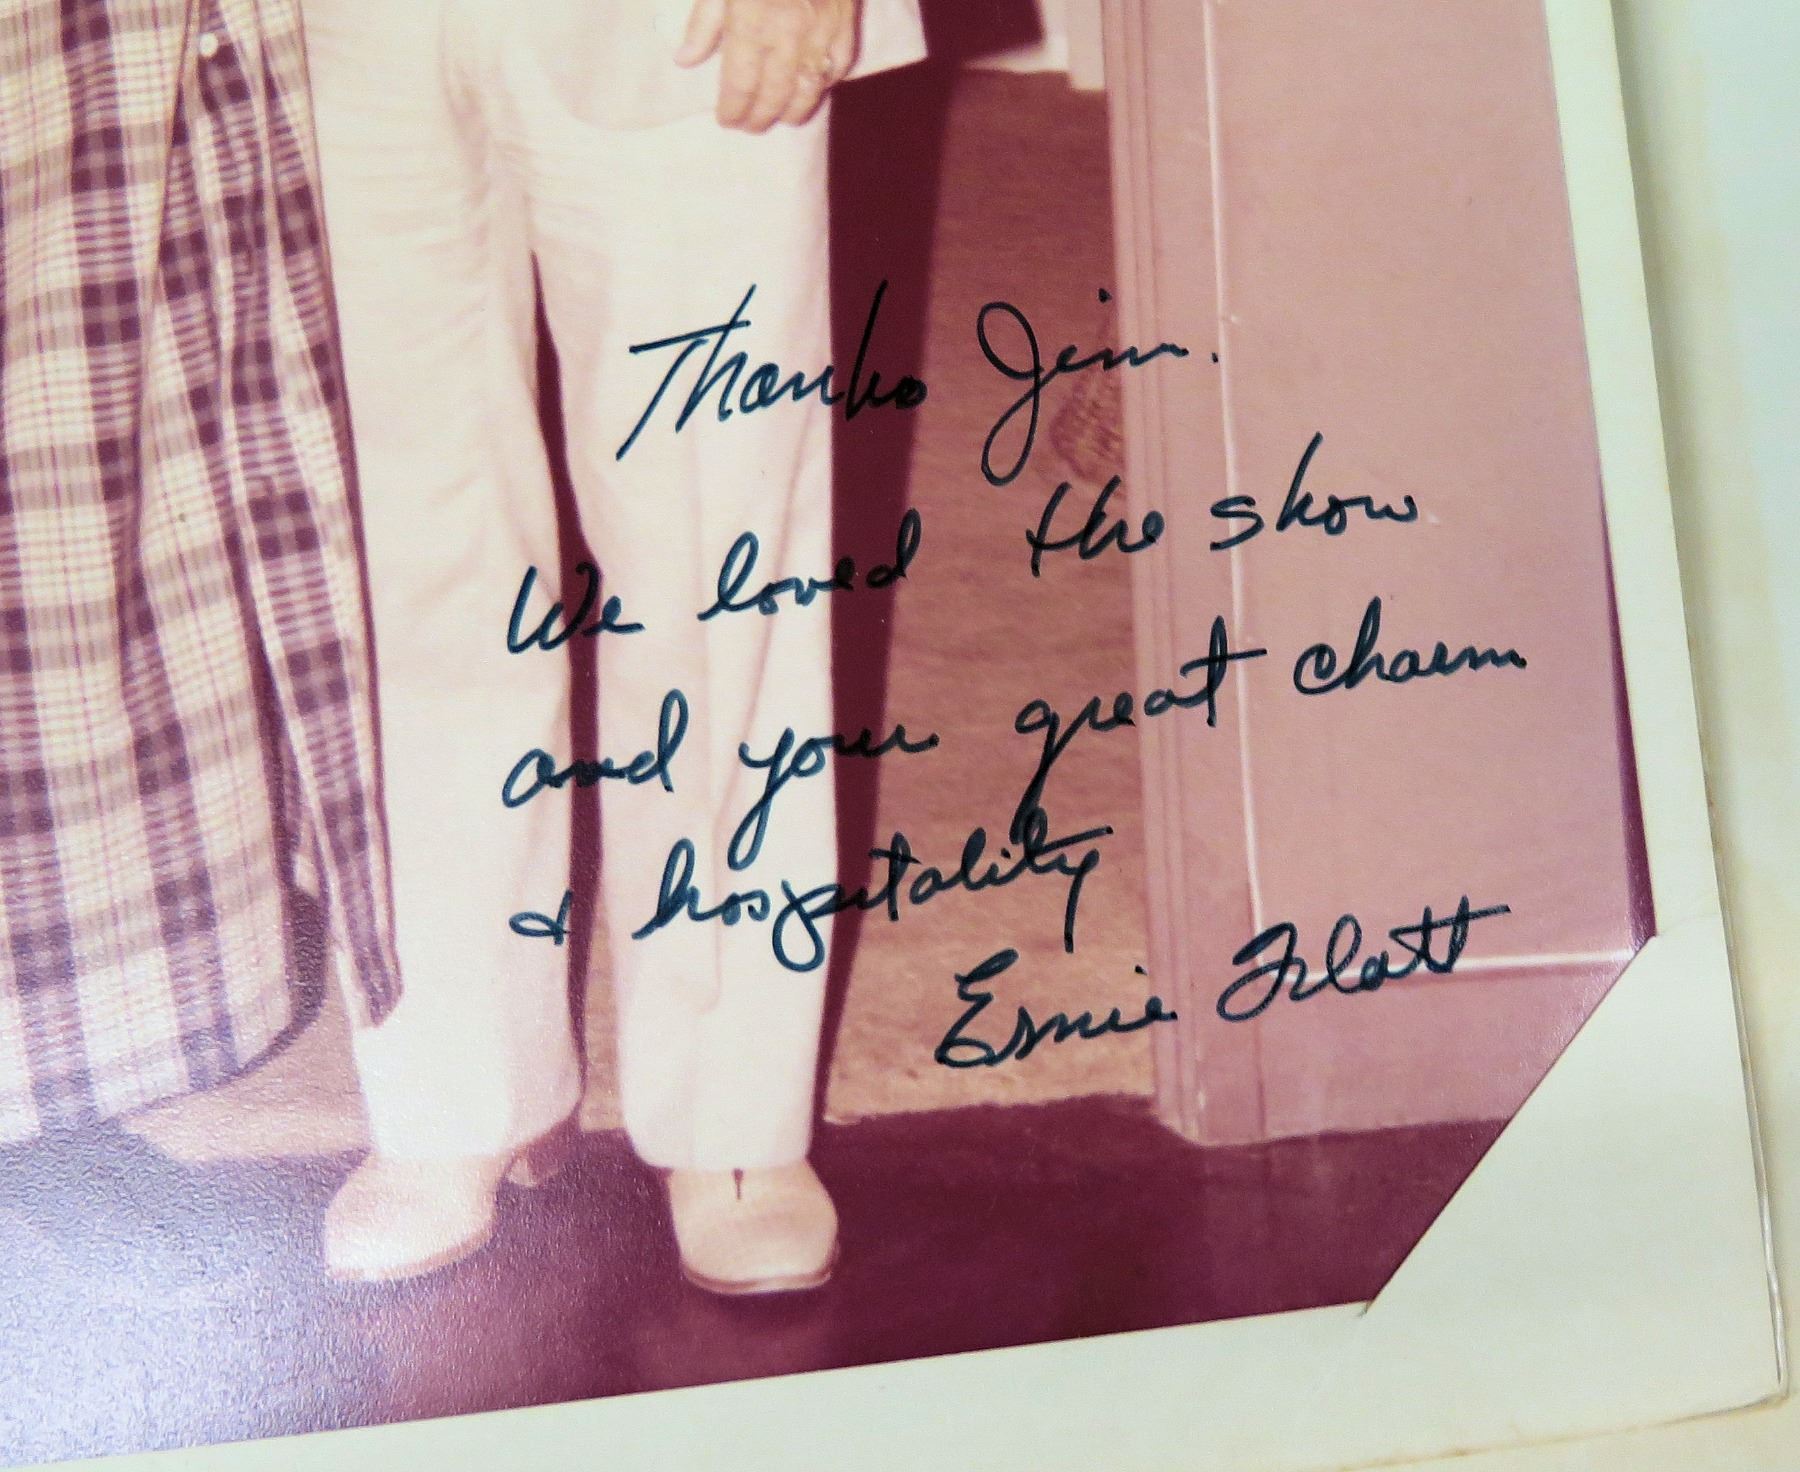 Thanks Jim.
We loved the show
and your great charm
& hospitality
Ernie Flatt